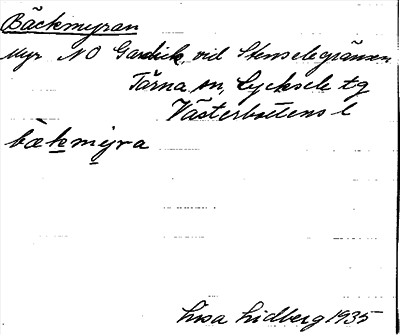 Bäckmyran
Myr NO Gardvik, vid Stenselegränsen
Tärna sn, Lycksele tg
Västerbottens l
bækmyra
Lisa Lidberg 1935